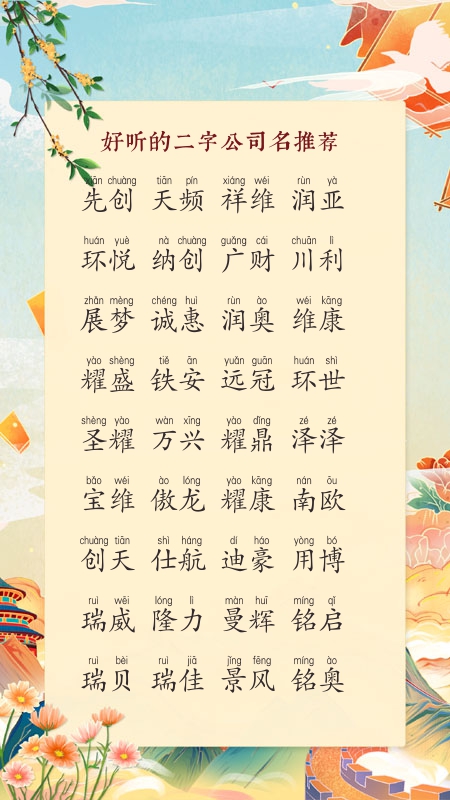 好听的二字公司名推荐
xiān chuàng tiān pín xiáng wéi rùn yà
先创 天频 祥维 润亚
huán yuè nà chuàng guǎng cái chuān lì
环悦 纳创 广财 川利
zhǎn mèng chéng huì rùn ào wéi kāng
展梦 诚惠 润奥 维康
yào shèng tiě ān yuǎn guān huán shì
耀盛 铁安 远冠 环世
shèng yào wàn xīng yào dǐng zé zé
圣耀 万兴 耀鼎 泽泽
bǎo wéi ào lóng yào kāng nán ōu
宝维 傲龙 耀康 南欧
chuàng tiān shì háng dí háo yòng bó
创天 仕航 迪豪 用博
ruì wēi lóng lì màn huī míng qǐ
瑞威 隆力 曼辉 铭启
ruì bèi ruì jiā jǐng fēng míng ào
瑞贝 瑞佳 景风 铭奥